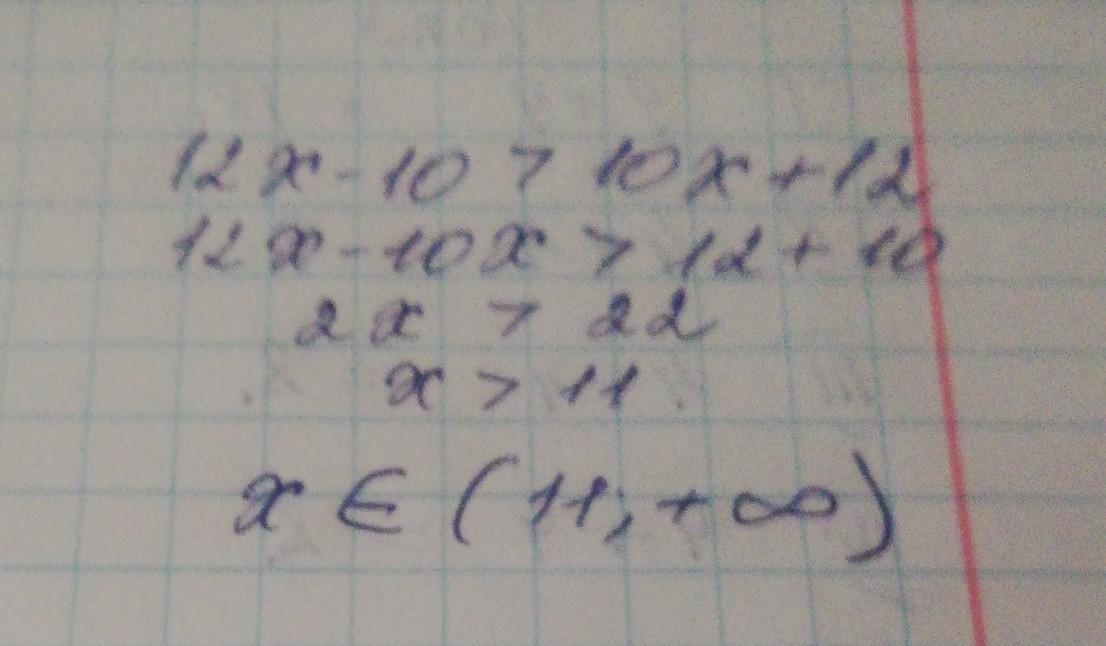 12x-10 > 10x+12
12x-10x > 12+10
2x > 22
x > 11
x ∈ (11;+∞)